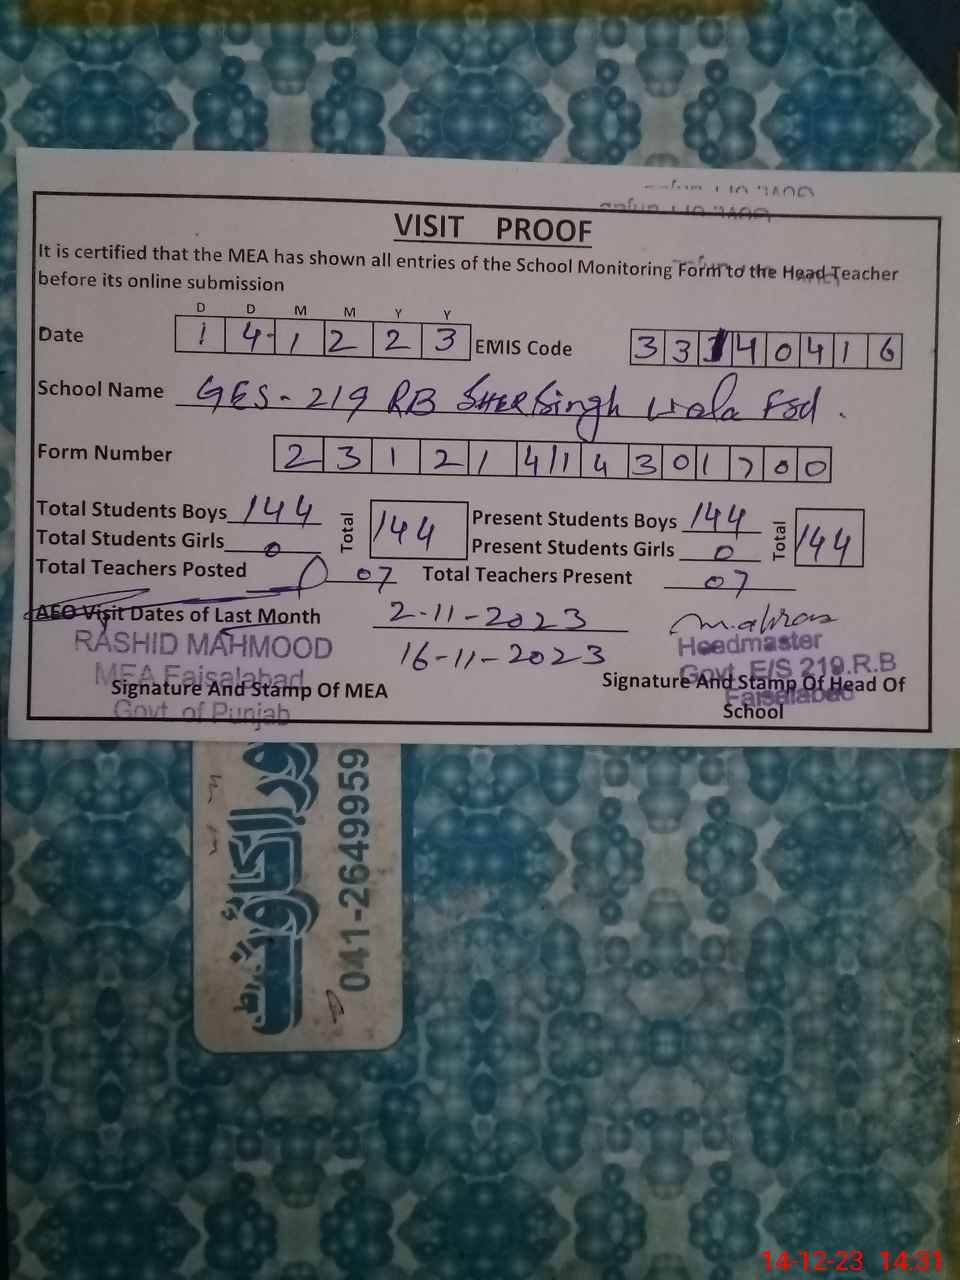 VISIT PROOF
It is certified that the MEA has shown all entries of the School Monitoring Form to the Head Teacher
before its online submission
D D M M Y Y
Date 1 4 1 2 2 3 EMIS Code 3 3 1 4 0 4 1 6
School Name GES-219 RB SHER Singh wala Fsd.
Form Number 2 3 1 2 1 4 1 4 3 0 1 7 0 0
Total Students Boys 144 Total 144 Present Students Boys 144 Total 144
Total Students Girls 0 Present Students Girls 0
Total Teachers Posted 07 Total Teachers Present 07
AEO Visit Dates of Last Month 2-11-2023
16-11-2023
RASHID MAHMOOD
MEA Faisalabad
Govt. of Punjab
Signature And Stamp Of MEA
Headmaster
Govt. E/S 219.R.B
Faisalabad
Signature And Stamp Of Head Of
School
041-2649959
14-12-23 14:31